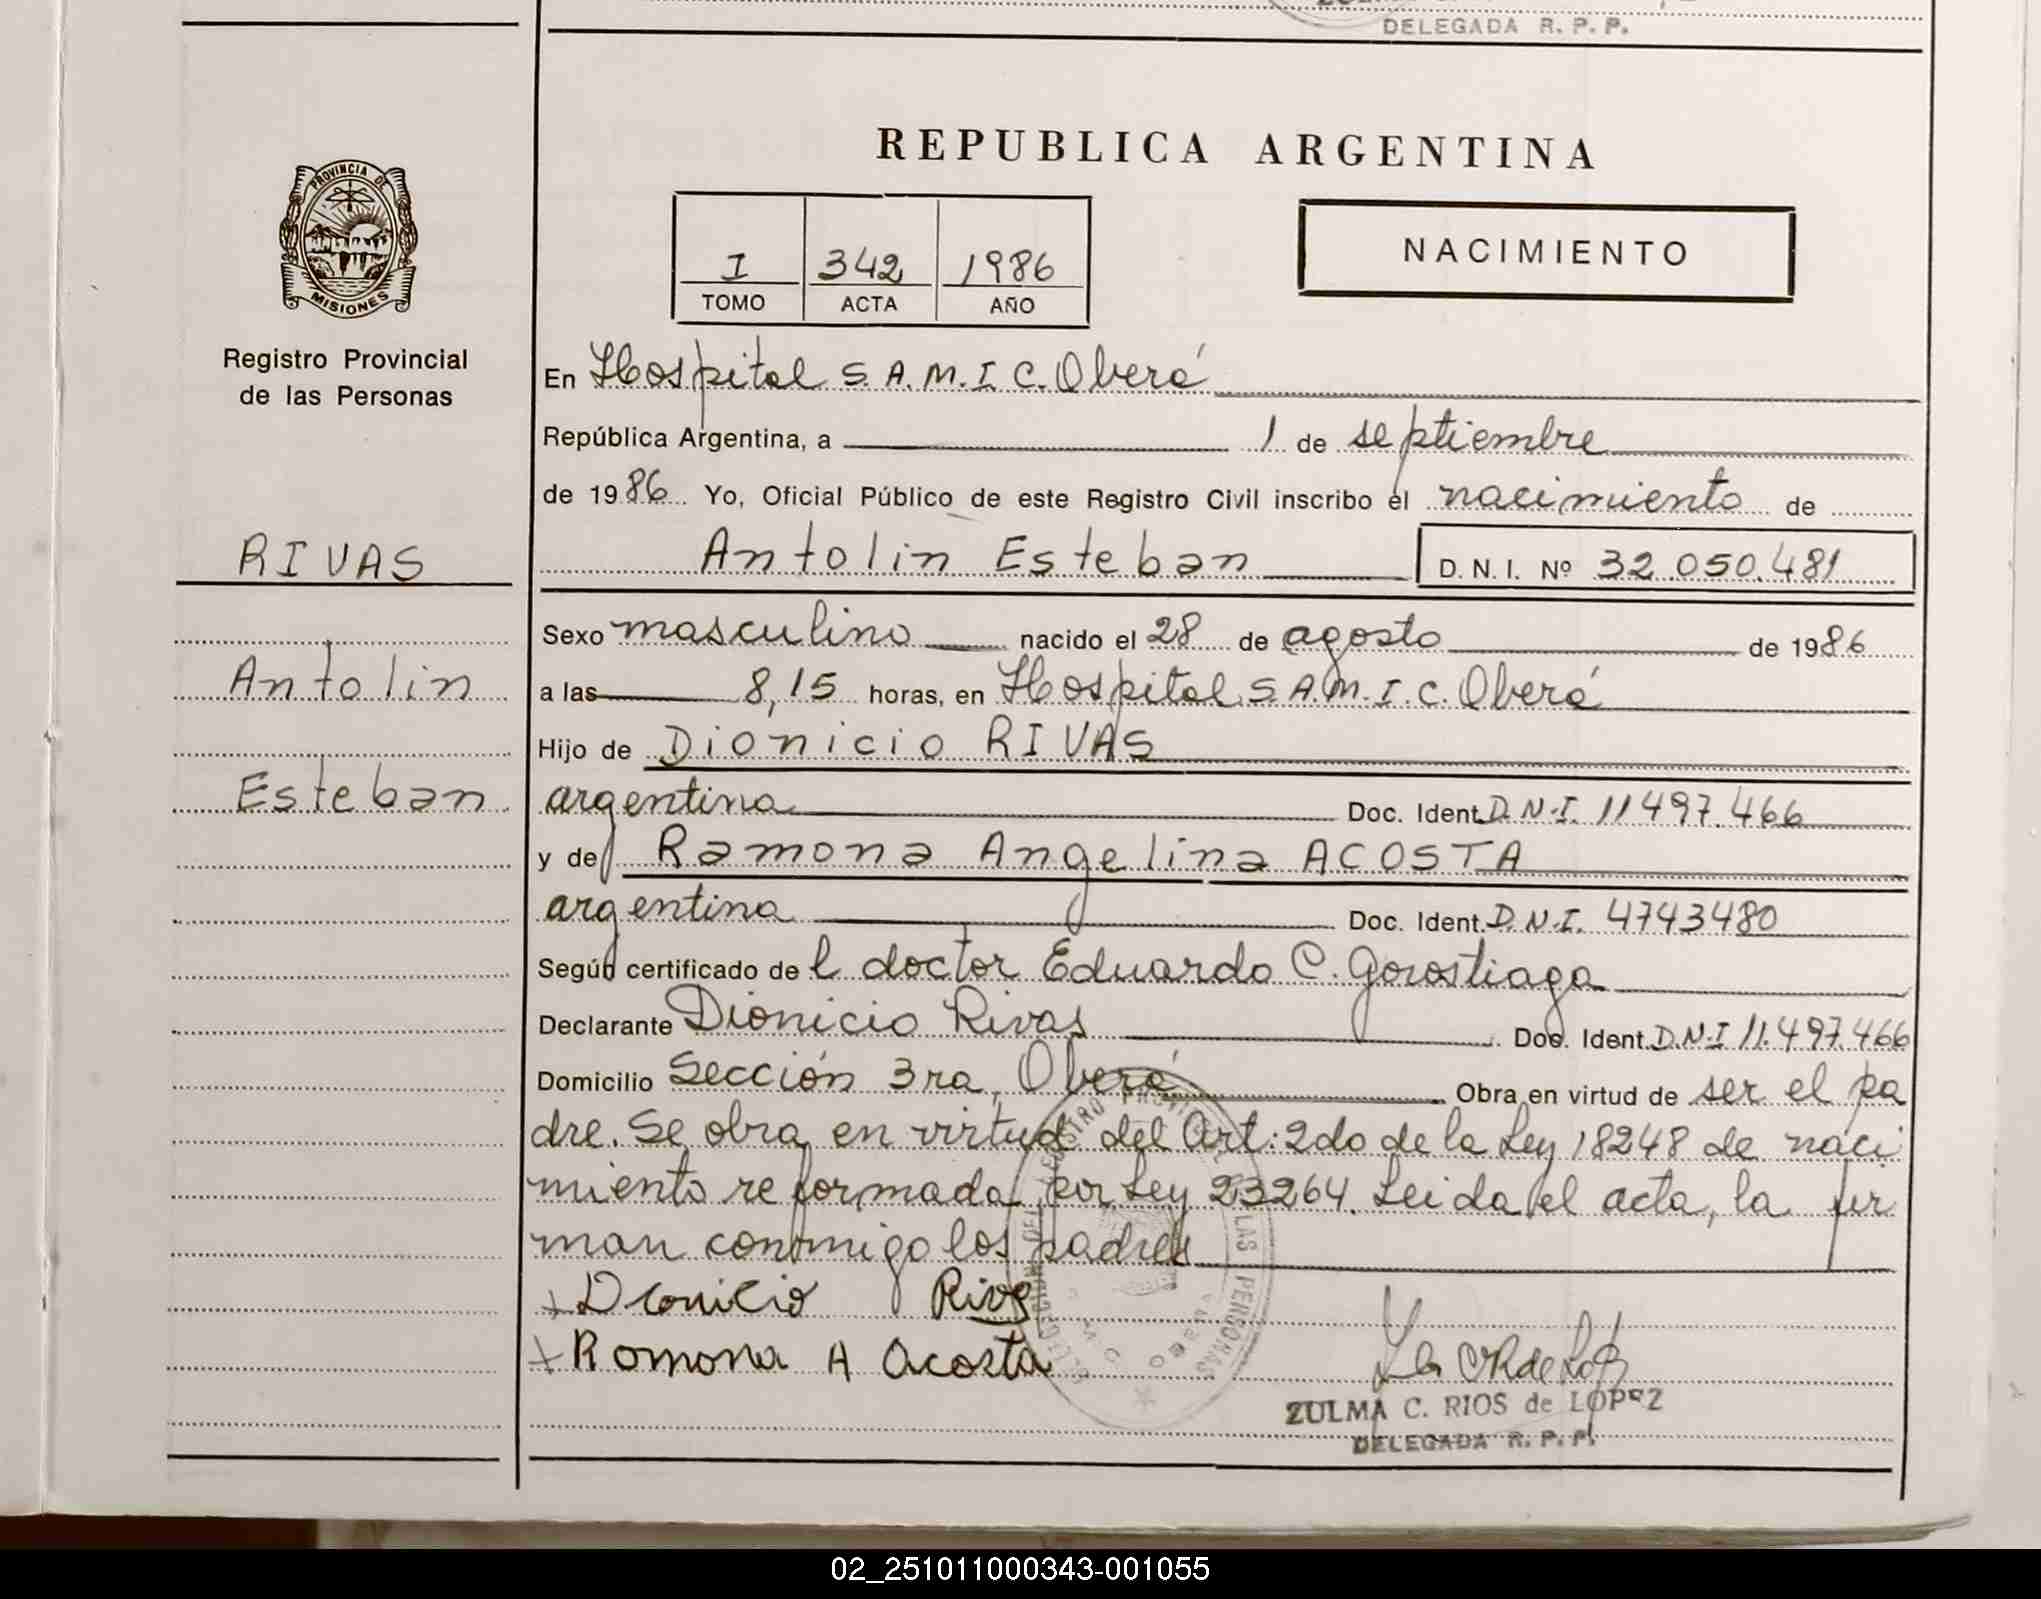 DELEGADA R. P. P.
REPUBLICA ARGENTINA
PROVINCIA DE
MISIONES
Registro Provincial
de las Personas
I 342 1986
TOMO ACTA AÑO
NACIMIENTO
En Hospital S.A.M.I.C. Oberá
República Argentina, a 1 de septiembre
de 1986 Yo, Oficial Público de este Registro Civil inscribo el nacimiento de
RIVAS
Antolin Esteban D. N. I. Nº 32.050.481
Sexo masculino nacido el 28 de agosto de 1986
Antolin
a las 8,15 horas, en Hospital S.A.M.I.C. Oberá
Hijo de Dionicio RIVAS
Esteban
argentina Doc. Ident. D.N.I. 11497.466
y de Ramona Angelina ACOSTA
argentina Doc. Ident. D.N.I. 4743480
Según certificado de l doctor Eduardo C. Gorostiaga
Declarante Dionicio Rivas Doc. Ident. D.N.I 11.497.466
Domicilio Sección 3ra, Oberá Obra en virtud de ser el pa
dre. Se obra en virtud del Art: 2do de la Ley 18248 de naci
miento reformada por Ley 23264. Leida el acta, la fir
man conmigo los padres
Dionicio Rivas
Romona A Acosta
ZULMA C. RIOS de LOPEZ
DELEGADA R. P. P.
02_251011000343-001055